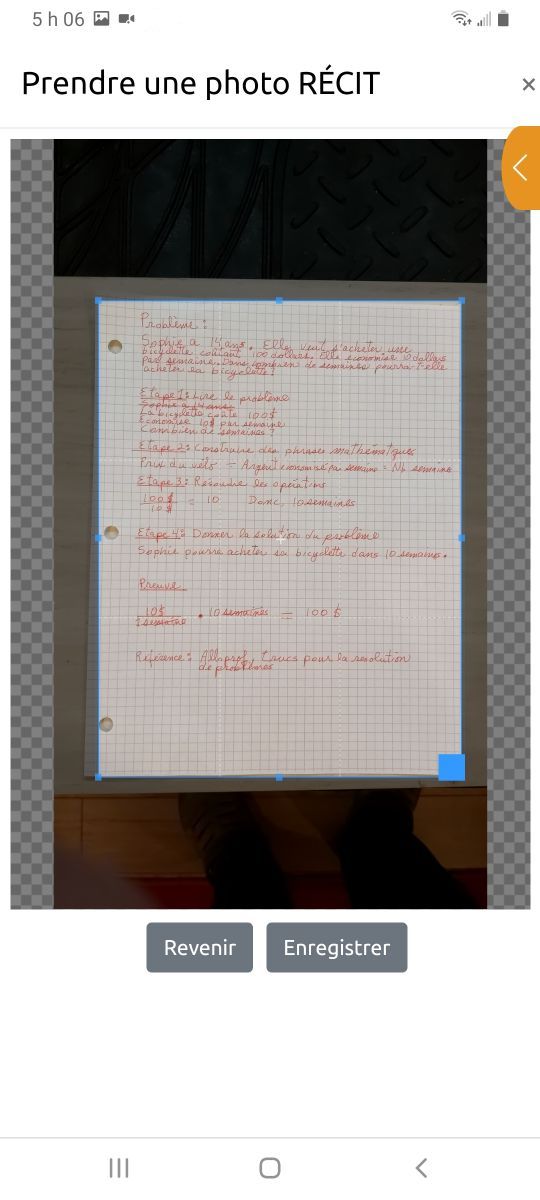 5 h 06
Prendre une photo RÉCIT
×
Problème :
Sophie a 14 ans. Elle veut s'acheter une
bicyclette coûtant 100 dollars. Elle économise 10 dollars
par semaine. Dans combien de semaines pourra-t-elle
acheter sa bicyclette?
Étape 1: Lire le problème
Sophie a 14 ans
La bicyclette coûte 100$
Économise 10$ par semaine
Combien de semaines?
Étape 2: Construire des phrases mathématiques
Prix du vélo ÷ Argent économisé par semaine = Nb semaine
Étape 3: Résoudre les opérations
100$ = 10 Donc, 10 semaines
10$
Étape 4: Donner la solution du problème
Sophie pourra acheter sa bicyclette dans 10 semaines.
Preuve
10$ • 10 semaines = 100 $
1 semaine
Référence : Alloprof, trucs pour la résolution
de problèmes
Revenir
Enregistrer